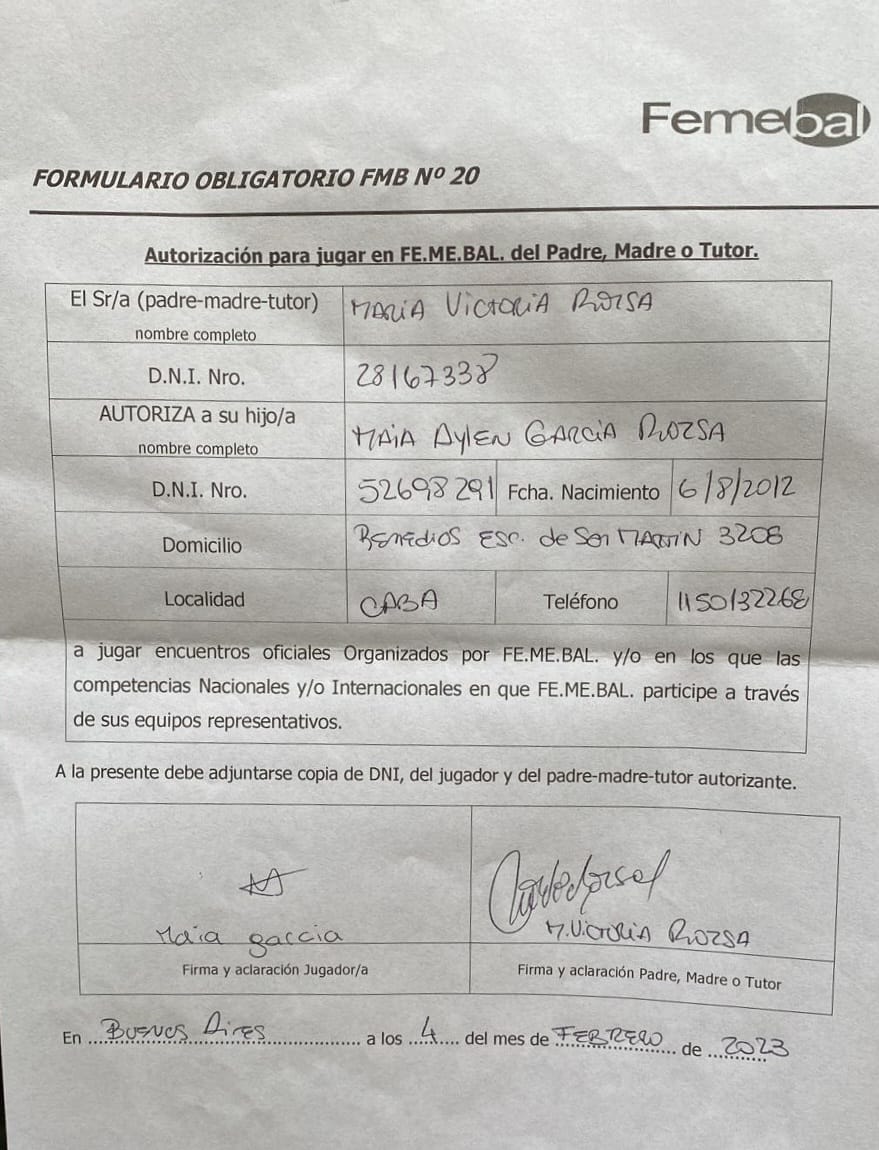 Femebal
FORMULARIO OBLIGATORIO FMB Nº 20
Autorización para jugar en FE.ME.BAL. del Padre, Madre o Tutor.
El Sr/a (padre-madre-tutor) MARIA VICTORIA ROZSA
nombre completo
D.N.I. Nro. 28167338
AUTORIZA a su hijo/a
nombre completo MAIA AYLEN GARCIA ROZSA
D.N.I. Nro. 52698291 Fcha. Nacimiento 6/8/2012
Domicilio REMEDIOS ESC. de San MARTIN 3208
Localidad CABA Teléfono 1150132268
a jugar encuentros oficiales Organizados por FE.ME.BAL. y/o en los que las
competencias Nacionales y/o Internacionales en que FE.ME.BAL. participe a través
de sus equipos representativos.
A la presente debe adjuntarse copia de DNI, del jugador y del padre-madre-tutor autorizante.
Maia garcia M. VICTORIA ROZSA
Firma y aclaración Jugador/a Firma y aclaración Padre, Madre o Tutor
En BUENOS AIRES a los 4 del mes de FEBRERO de 2023